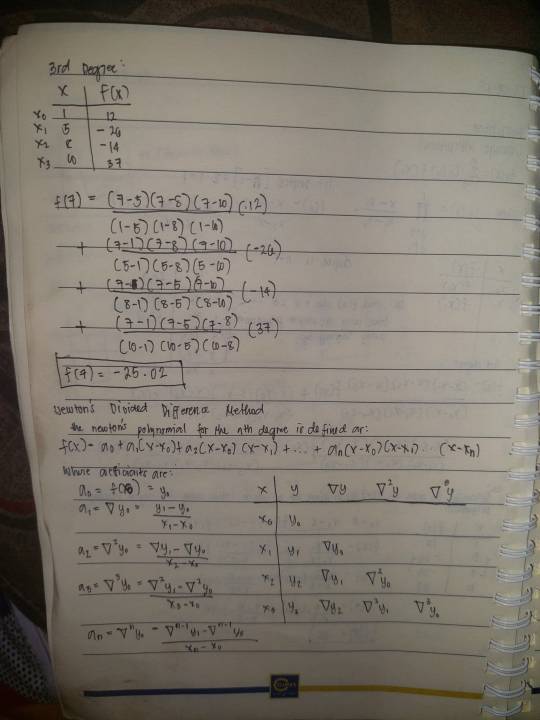 3rd Degree:
x f(x)
x₀ 1 12
x₁ 5 -26
x₂ 8 -14
x₃ 10 37
f(7) = (7-5)(7-8)(7-10) (12)
(1-5)(1-8)(1-10)
+ (7-1)(7-8)(7-10) (-26)
(5-1)(5-8)(5-10)
+ (7-1)(7-5)(7-10) (-14)
(8-1)(8-5)(8-10)
+ (7-1)(7-5)(7-8) (37)
(10-1)(10-5)(10-8)
f(7) = -25.02
Newton's Divided Difference Method
the newton's polynomial for the nth degree is defined as:
f(x) = a₀ + a₁(x-x₀) + a₂(x-x₀)(x-x₁) + ... + aₙ(x-x₀)(x-x₁) ... (x-xₙ)
Where coefficients are:
a₀ = f(x₀) = y₀
a₁ = ∇y₀ = y₁-y₀
x₁-x₀
a₂ = ∇²y₀ = ∇y₁-∇y₀
x₂-x₀
a₃ = ∇³y₀ = ∇²y₁-∇²y₀
x₃-x₀
aₙ = ∇ⁿy₀ = ∇ⁿ⁻¹y₁-∇ⁿ⁻¹y₀
xₙ-x₀
x y ∇y ∇²y ∇³y
x₀ y₀
x₁ y₁ ∇y₀
x₂ y₂ ∇y₁ ∇²y₀
x₃ y₃ ∇y₂ ∇²y₁ ∇³y₀